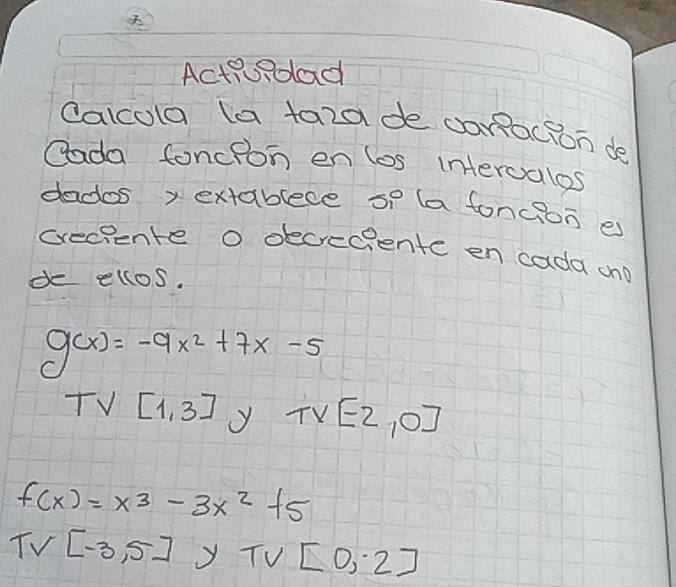 Actividad
Calcula la taza de variación de
Cada función en los intervalos
dados y extablece si la función es
creciente o decreciente en cada uno
de ellos.
g(x) = -9x² + 7x - 5
TV [1,3] y TV [-2,0]
f(x) = x³ - 3x² + 5
TV [-3,5] y TV [0,2]